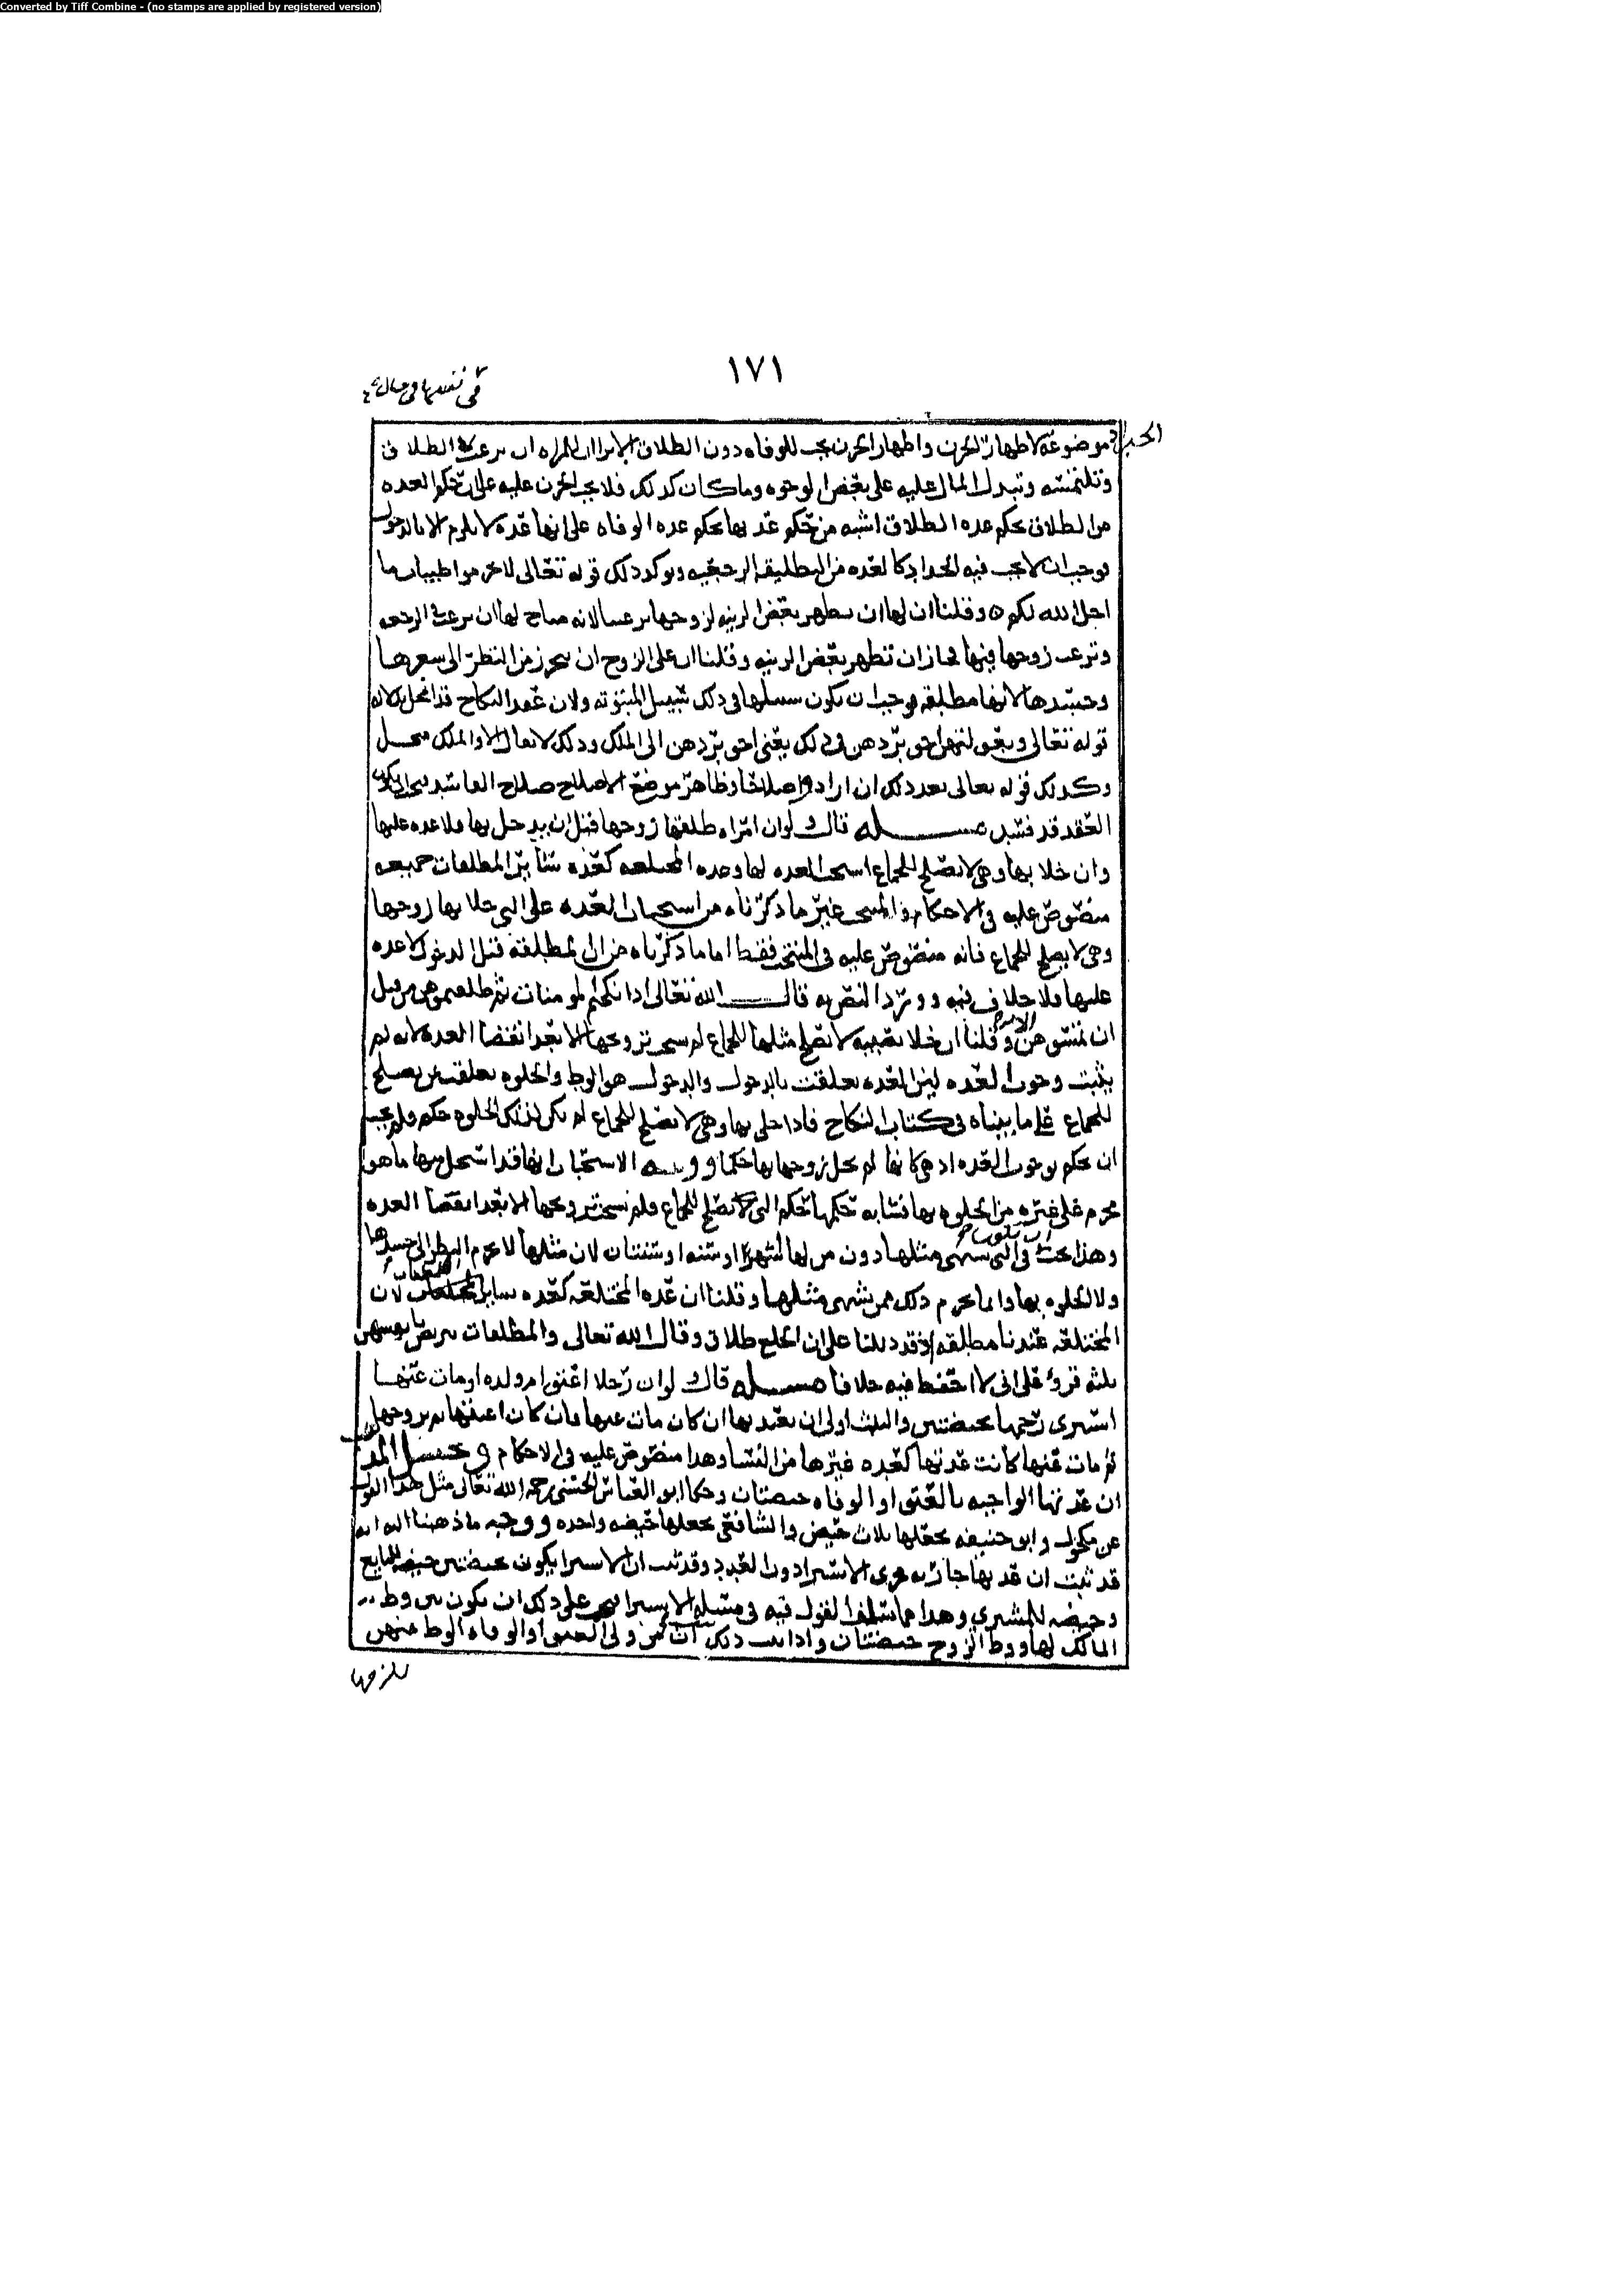 Converted by Tiff Combine - (no stamps are applied by registered version)
١٧١
موضوعه لاظهار الحزن واظهار الحزن يجب للوفاه دون الطلاق الا ترا ان المراه ان ترغب في الطلاق
وتلتمسه وتبدل المال عليه على بعض الوجوه وما كان كذلك فلا يجب الحزن عليه على ان حكم العده
من الطلاق بحكم عده الطلاق اشبه من حكم عدتها بحكم عده الوفاه على انها عده لا تلزم الا بالدخول
فوجب ان لا يجب فيه الحداد كالعده من التطليقه الرجعيه ويوكد ذلك قوله تعالى لا تحرموا طيبات ما
احل الله لكم ٥ وقلنا ان لها ان تظهر بعض الزينه لزوجها لانه مباح لها ان ترغب في الرجعه
وترغب زوجها فيها فجاز ان تظهر بعض الزينه وقلنا ان على الزوج ان يتحرز من النظر الى شعرها
وجسدها لانها مطلقه فوجب ان يكون سبيلها في ذلك سبيل المبتوته ولان عقد النكاح قد انحل بدلاله
قوله تعالى وبعولتهن احق بردهن في ذلك يعني احق بردهن الى الملك وذلك لا يقال الا والملك منحل
وكذلك قوله تعالى بعد ذلك ان ارادوا اصلاحا وظاهر موضع الاصلاح صلاح الفاسد فيجب ان يكون
العقد قد فسد مسله قال ولو ان امراه طلقها زوجها قبل ان يدخل بها فلا عده عليها
وان خلا بها وهي لا تصلح للجماع استحب العده لها وعده المختلعه كعده سائر المطلقات جميعه
منصوص عليه في الاحكام والمنتخب غير ما ذكرناه من استحباب العده على التي خلا بها زوجها
وهي لا تصلح للجماع فانه منصوص عليه في المنتخب فقط اما ما ذكرناه من ان المطلقه قبل الدخول لا عده
عليها فلا خلاف فيه وورد النص به قال الله تعالى اذا نكحتم المومنات ثم طلقتموهن من قبل
ان تمسوهن الايه وقلنا ان خلا بصبيه لا تصلح مثلها للجماع لم يستحب تزوجها الا بعد انقضا العده لانه لم
يثبت وجوب العده لان العده تعلقت بالدخول والدخول هو الوطء والخلوه تعلقت بمن يصلح
للجماع على ما بيناه في كتاب النكاح فاذا خلى بها وهي لا تصلح للجماع لم يكن لتلك الخلوه حكم ولم يجب
ان يحكم بوجوب العده اذ هي كانها لم يخل زوجها بها حكما ووجه الاستحباب انها قد استحل منها ما هو
محرم على غيره من الخلوه بها فشابه حكمها حكم التي تصلح للجماع فلم نستحب تزوجها الا بعد انقضا العده
وهذا يجب ان يكون في التي تشتهى مثلها دون من لها شهرا او سنه او سنتان لان مثلها لا يحرم النظر الى جسدها
ولا الخلوه بها وانما يحرم ذلك ممن تشتهى مثلها وقلنا ان عده المختلعه كعده سائر المطلقات لان
المختلعه عندنا مطلقه اذ قد دللنا على ان الخلع طلاق وقال الله تعالى والمطلقات يتربصن بانفسهن
ثلثه قروء على اني لا احفظ فيه خلافا مسله قال ولو ان رجلا اعتق ام ولده او مات عنها
استبرى رحمها بحيضتين والثلث اولى ان تعتد بها ان كان مات عنها فان كان اعتقها ثم تزوجها
ثم مات عنها كانت عدتها كعده غيرها من النسا وهذا منصوص عليه في الاحكام
ان عدتها الواجبه بالعتق او الوفاه حيضتان وحكا ابو العباس الحسني رحمه الله تعالى مثل هذا القول
عن مكحول وابو حنيفه يجعلها ثلاث حيض والشافعي يجعلها حيضه واحده ووجه ما ذهبنا اليه انه
قد ثبت ان عدتها جاريه مجرى الاستبرا دون العدد وقد ثبت ان الاستبرا يكون بحيضتين حيضه للبايع
وحيضه للمشتري وهذا مما سلف القول فيه في مسله الاستبرا على ذلك ان يكون بين وطء
المالك لها ووطء الزوج حيضتان واذا ثبت ذلك العتق او الوفاه الوطء منهن
يلزمها